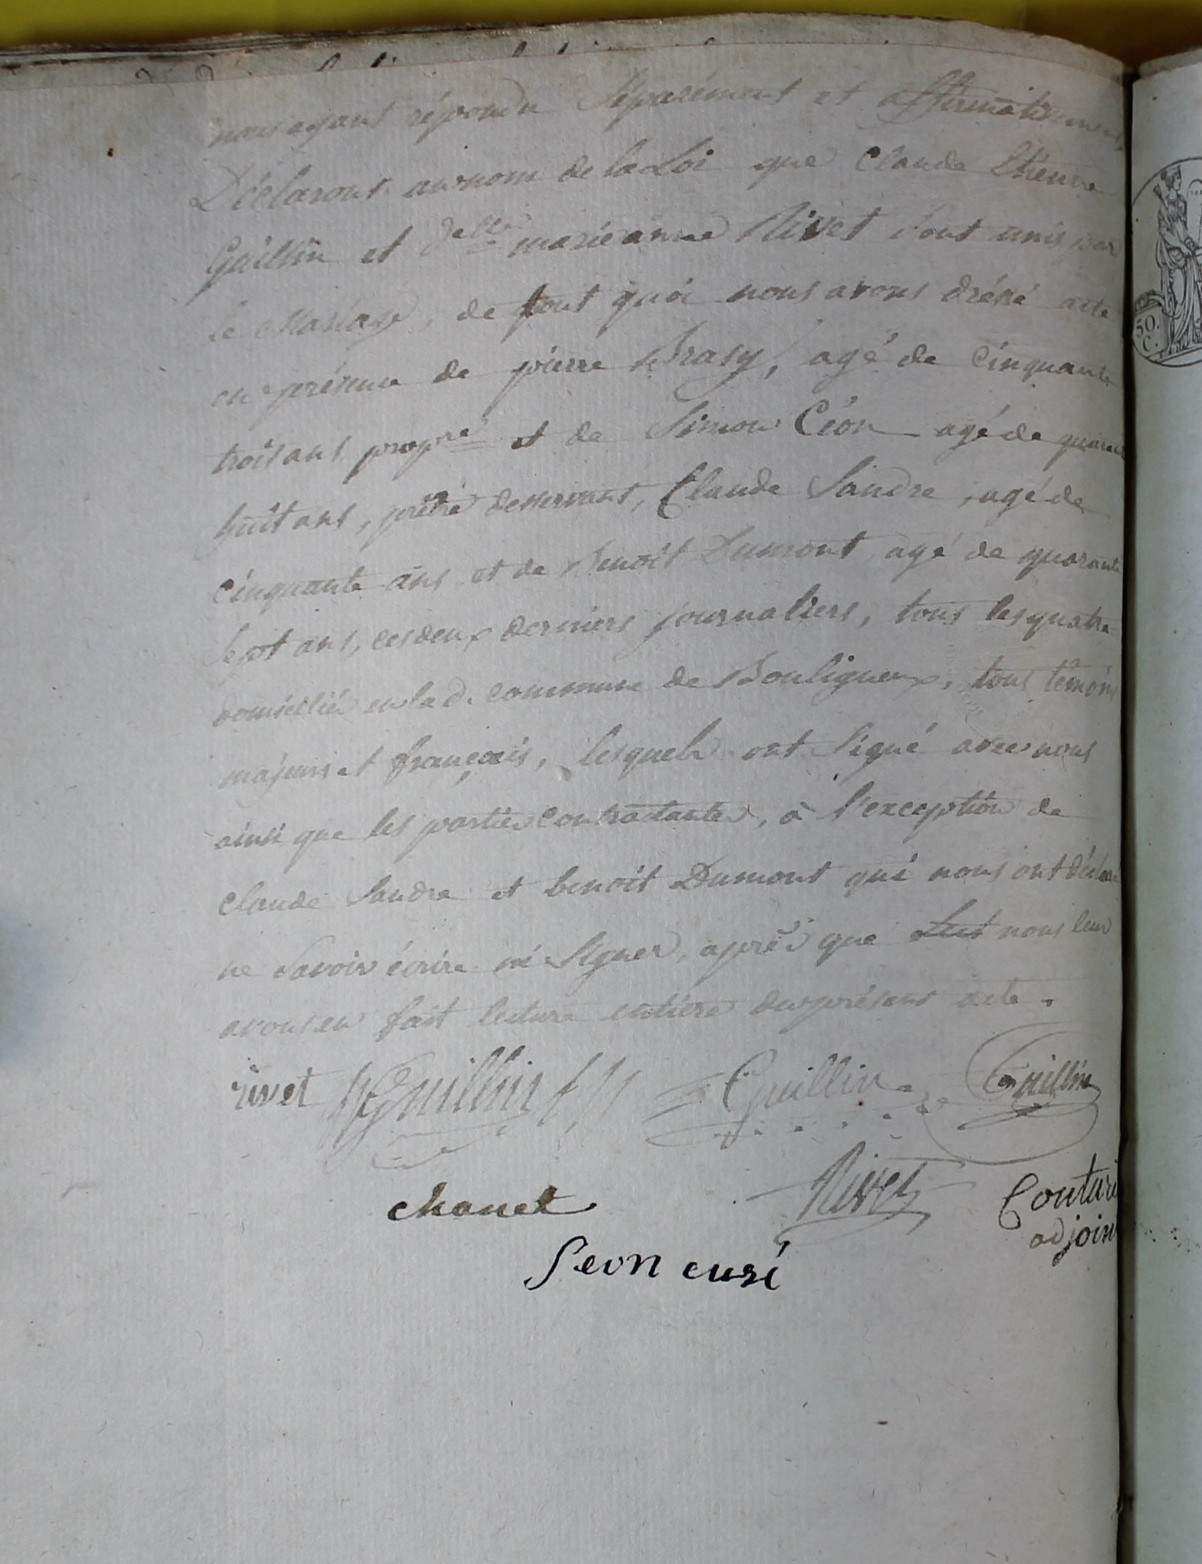 nous ayant répondu séparément et affirmativement
Déclarons au nom de la Loi que Claude Etienne
Guillin et delle marie anne Rivet sont unis par
le mariage, de tout quoi nous avons drésé acte
en présence de pierre Brasy, agé de Cinquante
trois ans propre et de Simon Céon agé de quarante
huit ans, prêtre desservant, Claude Sandre, agé de
cinquante ans et de Benoit Dumont agé de quarante
sept ans, ces deux derniers journaliers, tous les quatre
domiciliés en lad. commune de Bouligneux, tous témoins
majeurs et français, lesquels ont signé avec nous
ainsi que les parties contractantes, à l'exception de
claude Sandre et benoit Dumont qui nous ont déclaré
ne savoir écrire ni signer, après que nous leur
avons eu fait lecture entière du présent acte.
rivet Guillin Guillin Guillin
chanel Rivet Couturi
adjoint
Seon curé
50.
C.